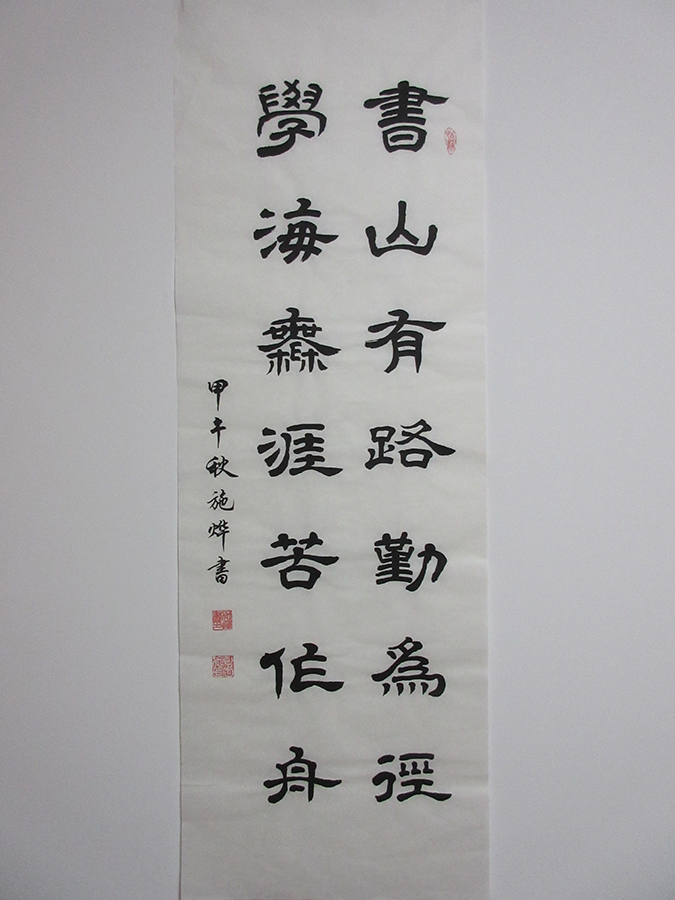 書山有路勤為徑
學海無涯苦作舟
甲午秋施烨書